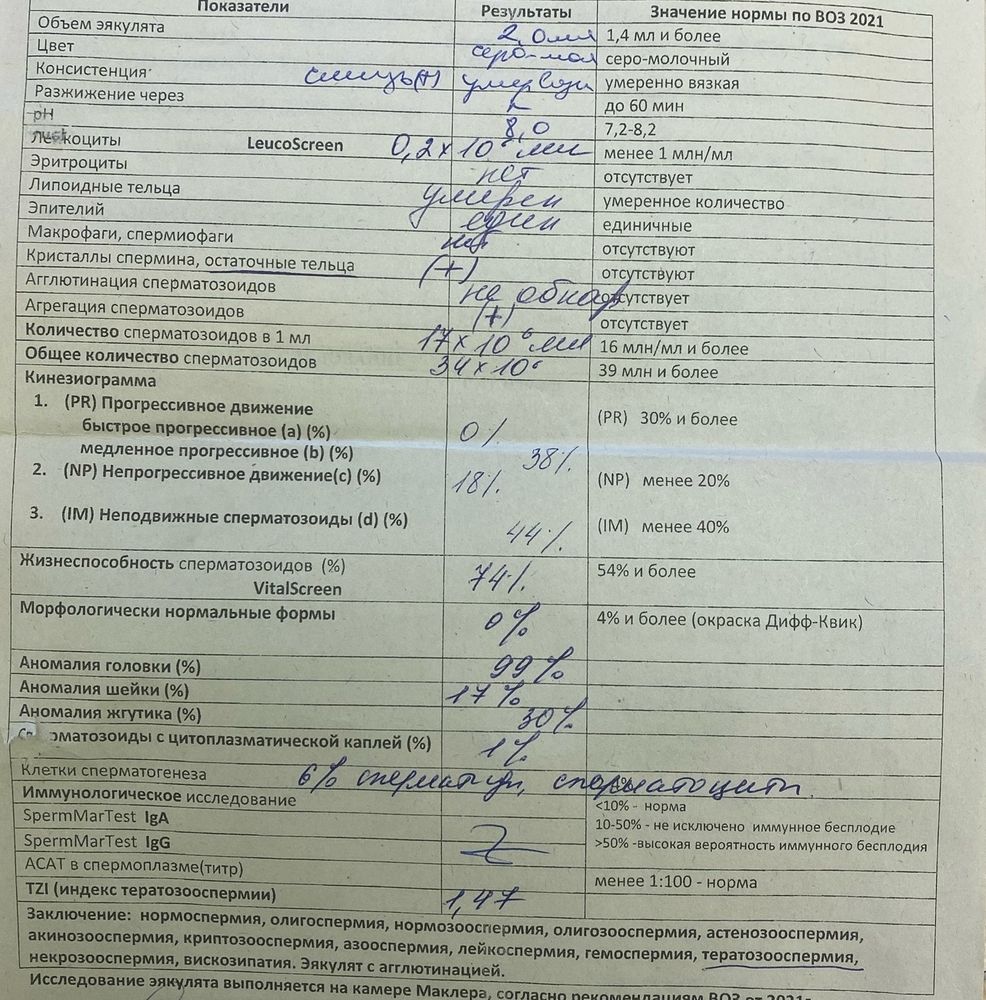 Показатели Результаты Значение нормы по ВОЗ 2021
Объем эякулята 2,0мл 1,4 мл и более
Цвет серо-мол серо-молочный
Консистенция слизь(+) умер вязк умеренно вязкая
Разжижение через до 60 мин
pH 8,0 7,2-8,2
Лейкоциты LeucoScreen 0,2×10⁶ мл менее 1 млн/мл
Эритроциты нет отсутствует
Липоидные тельца умерен умеренное количество
Эпителий един единичные
Макрофаги, спермиофаги нет отсутствуют
Кристаллы спермина, остаточные тельца (+) отсутствуют
Агглютинация сперматозоидов не обнар отсутствует
Агрегация сперматозоидов (+) отсутствует
Количество сперматозоидов в 1 мл 17×10⁶ мл 16 млн/мл и более
Общее количество сперматозоидов 34×10⁶ 39 млн и более
Кинезиограмма
1. (PR) Прогрессивное движение (PR) 30% и более
быстрое прогрессивное (a) (%) 0%
медленное прогрессивное (b) (%) 38%
2. (NP) Непрогрессивное движение(c) (%) 18% (NP) менее 20%
3. (IM) Неподвижные сперматозоиды (d) (%) 44% (IM) менее 40%
Жизнеспособность сперматозоидов (%) 74% 54% и более
VitalScreen
Морфологически нормальные формы 0% 4% и более (окраска Дифф-Квик)
Аномалия головки (%) 99%
Аномалия шейки (%) 17%
Аномалия жгутика (%) 30%
Сперматозоиды с цитоплазматической каплей (%) 1%
Клетки сперматогенеза 6% сперматиды, сперматоциты
Иммунологическое исследование <10% - норма
SpermMarTest IgA 10-50% - не исключено иммунное бесплодие
SpermMarTest IgG >50% -высокая вероятность иммунного бесплодия
АСАТ в спермоплазме(титр) менее 1:100 - норма
TZI (индекс тератозооспермии) 1,47
Заключение: нормоспермия, олигоспермия, нормозооспермия, олигозооспермия, астенозооспермия,
акинозооспермия, криптозооспермия, азооспермия, лейкоспермия, гемоспермия, тератозооспермия,
некрозооспермия, вискозипатия. Эякулят с агглютинацией.
Исследование эякулята выполняется на камере Маклера, согласно рекомендациям ВОЗ от 2021г